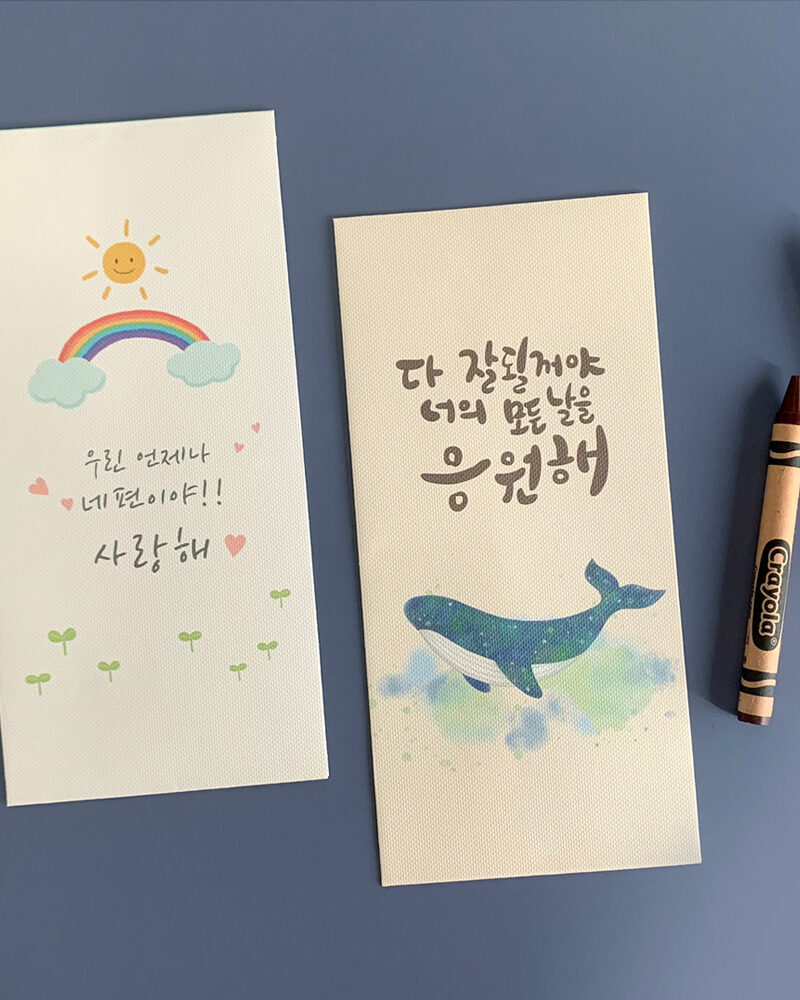 우린 언제나
네편이야!!
사랑해
다 잘될꺼야
너의 모든날을
응원해
Crayola